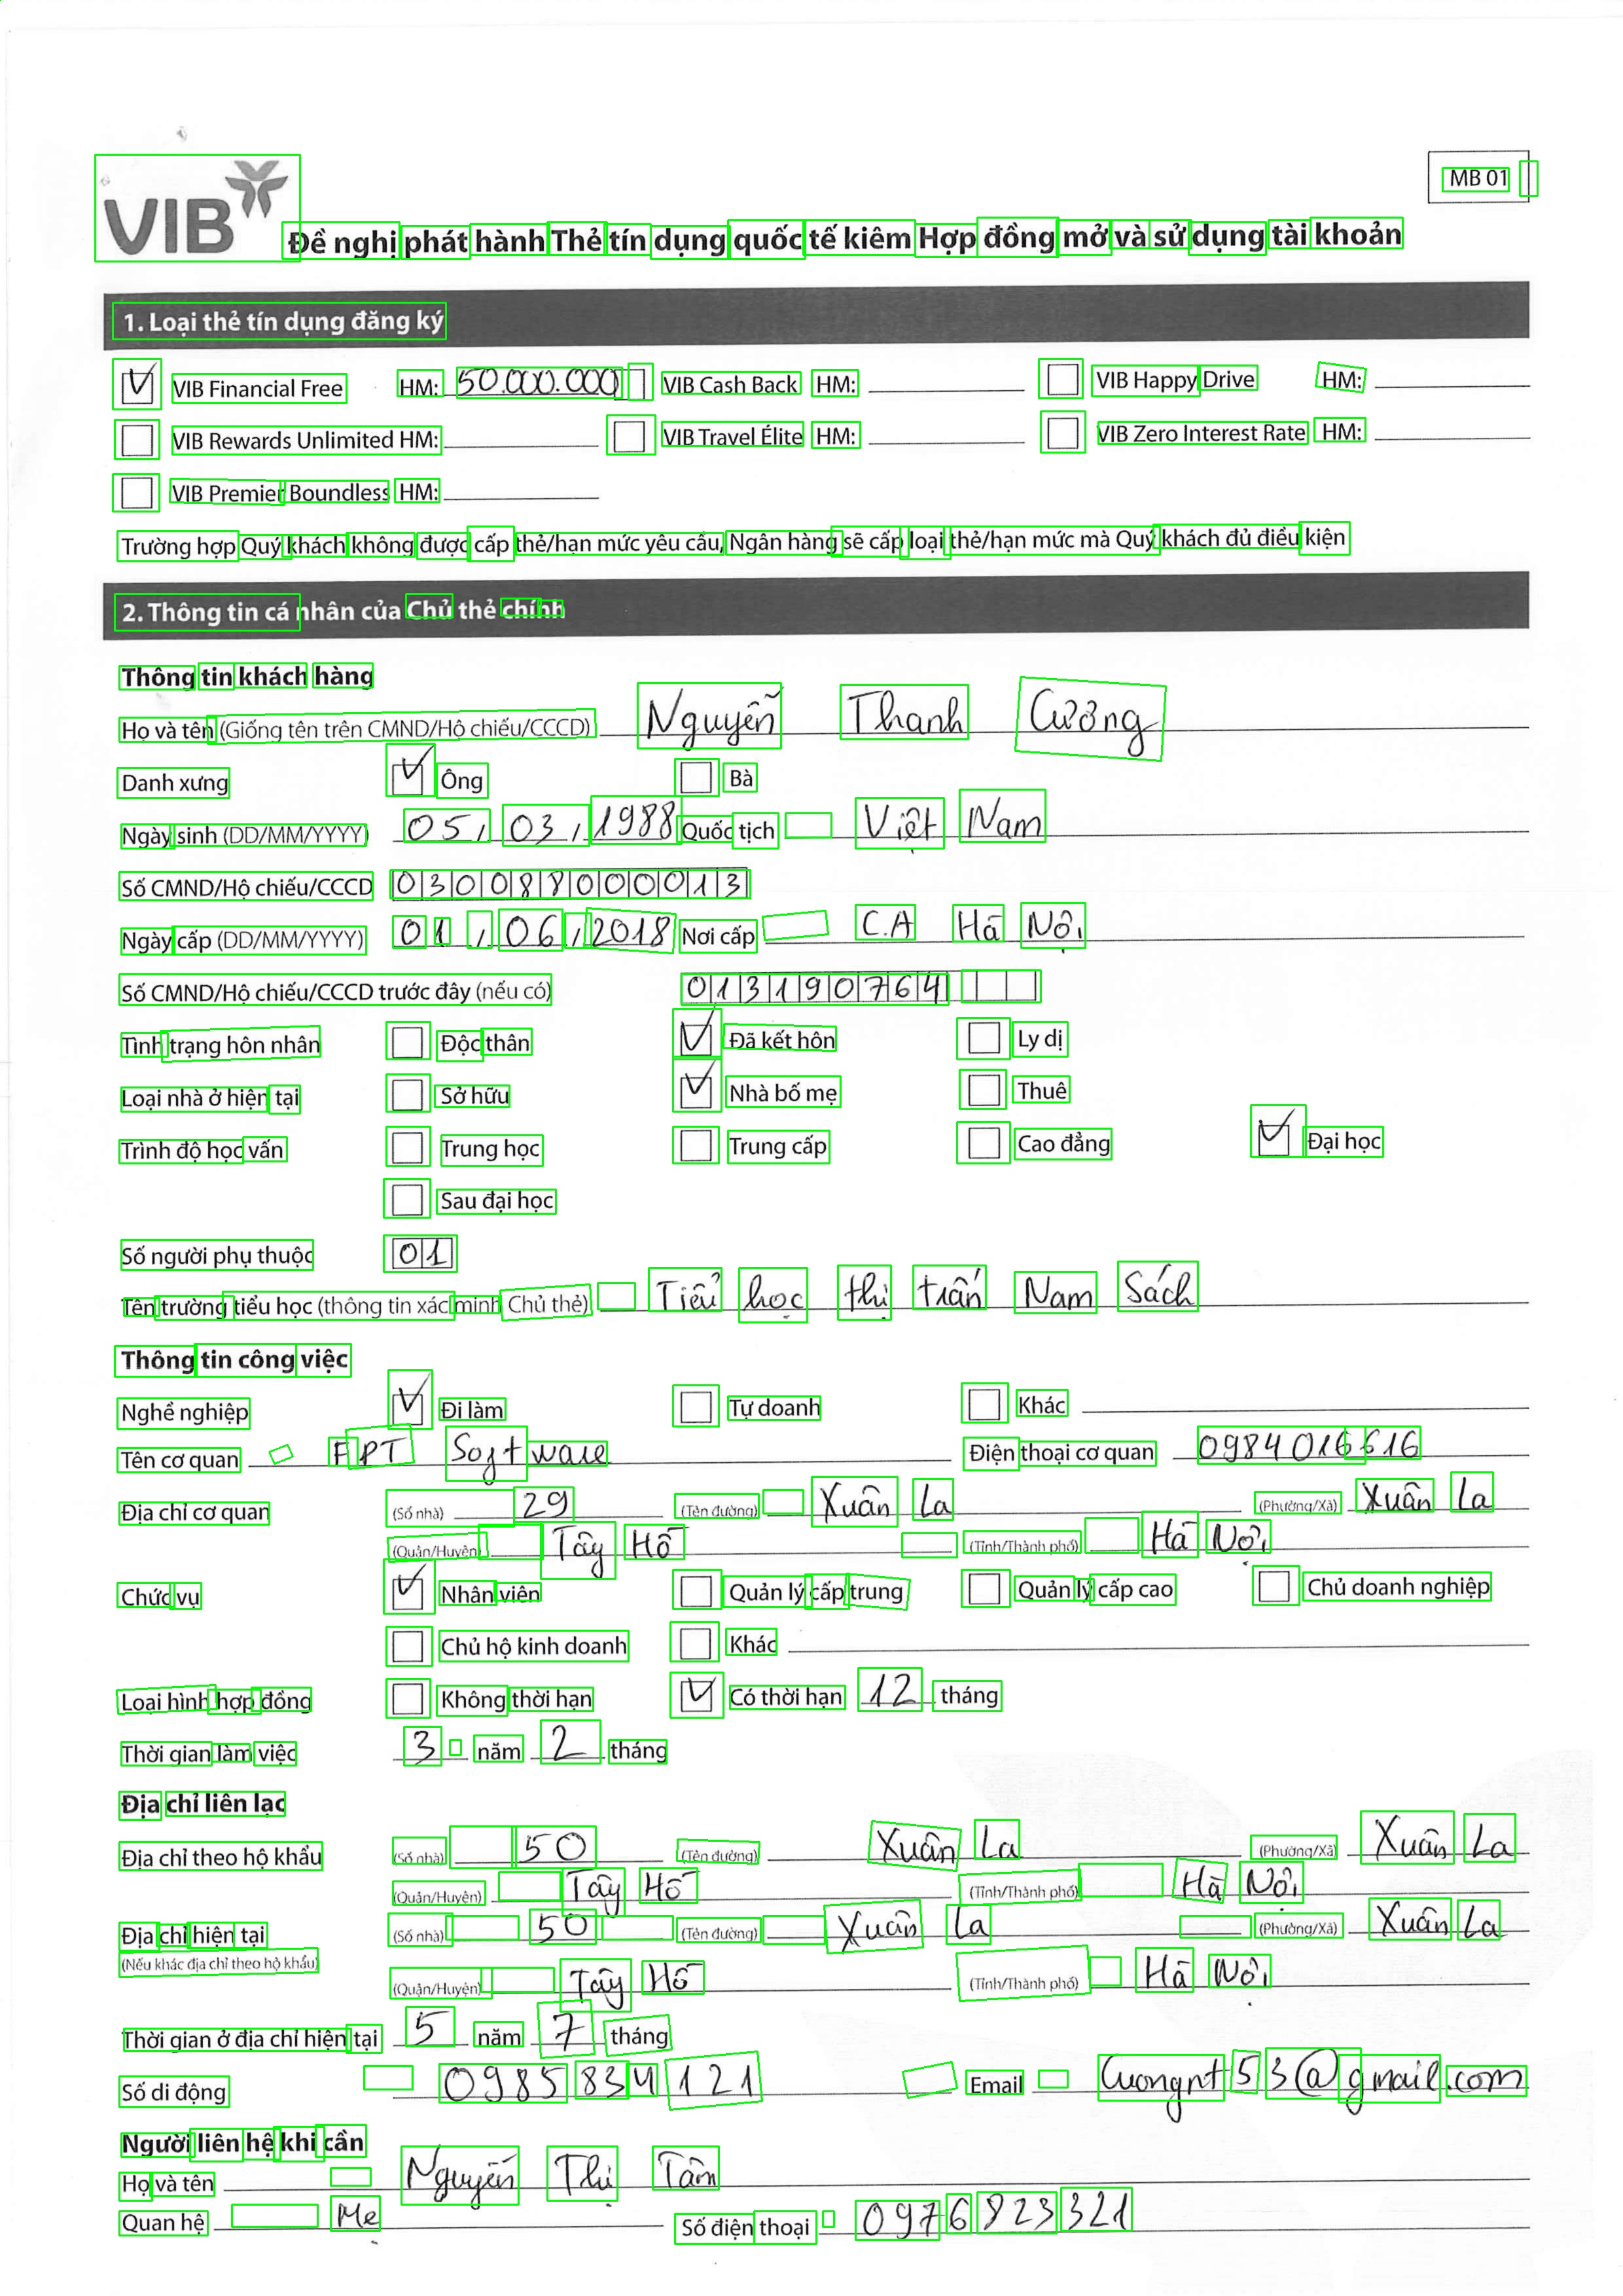 VIB
MB 01
Đề nghị phát hành Thẻ tín dụng quốc tế kiêm Hợp đồng mở và sử dụng tài khoản
1. Loại thẻ tín dụng đăng ký
VIB Financial Free HM: 50.000.000 VIB Cash Back HM: VIB Happy Drive HM:
VIB Rewards Unlimited HM: VIB Travel Élite HM: VIB Zero Interest Rate HM:
VIB Premier Boundless HM:
Trường hợp Quý khách không được cấp thẻ/hạn mức yêu cầu, Ngân hàng sẽ cấp loại thẻ/hạn mức mà Quý khách đủ điều kiện
2. Thông tin cá nhân của Chủ thẻ chính
Thông tin khách hàng
Họ và tên (Giống tên trên CMND/Hộ chiếu/CCCD) Nguyễn Thanh Cương
Danh xưng Ông Bà
Ngày sinh (DD/MM/YYYY) 05, 03, 1988 Quốc tịch Việt Nam
Số CMND/Hộ chiếu/CCCD 030088000013
Ngày cấp (DD/MM/YYYY) 01, 06, 2018 Nơi cấp C.A Hà Nội
Số CMND/Hộ chiếu/CCCD trước đây (nếu có) 013190764
Tình trạng hôn nhân Độc thân Đã kết hôn Ly dị
Loại nhà ở hiện tại Sở hữu Nhà bố mẹ Thuê
Trình độ học vấn Trung học Trung cấp Cao đẳng Đại học
Sau đại học
Số người phụ thuộc 01
Tên trường tiểu học (thông tin xác minh Chủ thẻ) Tiểu học thị trấn Nam Sách
Thông tin công việc
Nghề nghiệp Đi làm Tự doanh Khác
Tên cơ quan FPT Software Điện thoại cơ quan 0984016616
Địa chỉ cơ quan (Số nhà) 29 (Tên đường) Xuân La (Phường/Xã) Xuân La
(Quận/Huyện) Tây Hồ (Tỉnh/Thành phố) Hà Nội
Chức vụ Nhân viên Quản lý cấp trung Quản lý cấp cao Chủ doanh nghiệp
Chủ hộ kinh doanh Khác
Loại hình hợp đồng Không thời hạn Có thời hạn 12 tháng
Thời gian làm việc 3 năm 2 tháng
Địa chỉ liên lạc
Địa chỉ theo hộ khẩu (Số nhà) 50 (Tên đường) Xuân La (Phường/Xã) Xuân La
(Quận/Huyện) Tây Hồ (Tỉnh/Thành phố) Hà Nội
Địa chỉ hiện tại (Số nhà) 50 (Tên đường) Xuân La (Phường/Xã) Xuân La
(Nếu khác địa chỉ theo hộ khẩu)
(Quận/Huyện) Tây Hồ (Tỉnh/Thành phố) Hà Nội
Thời gian ở địa chỉ hiện tại 5 năm 7 tháng
Số di động 0985834121 Email Cuongnt53@gmail.com
Người liên hệ khi cần
Họ và tên Nguyễn Thị Tâm
Quan hệ Mẹ Số điện thoại 0976823321